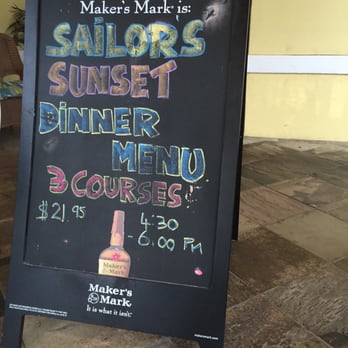 Maker's Mark is:
SAILOR'S
SUNSET
DINNER
MENU
3 COURSES
$21.95
4:30
-6:00 PM
Maker's
Mark
Maker's
Mark
It is what it isn't.
makersmark.com